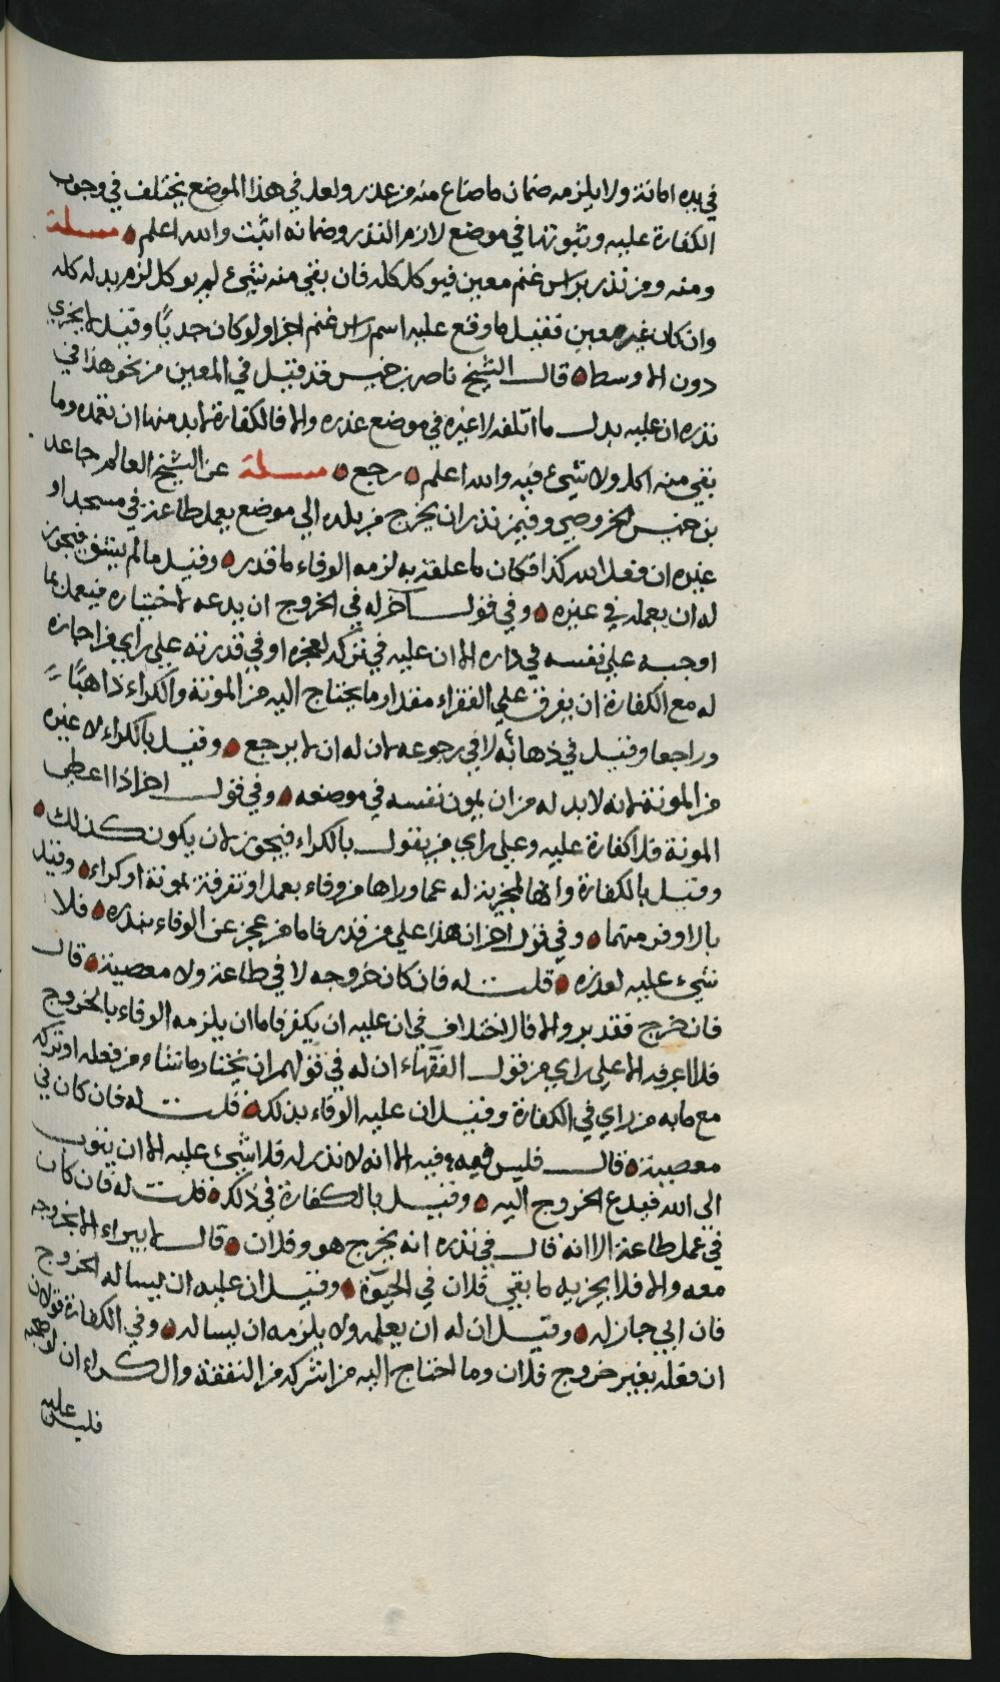 في يده امانة ولا يلزمه ضمان ما ضاع منه من عذر ولعل في هذا الموضع يختلف في وجوب
الكفارة عليه وثبوتها في موضع لازم النذر وضمانه اثبت والله اعلم مسئلة
ومنه ومن نذر براس غنم معين فيوكل كله فان بقي منه شيء لم يوكل لزمه بدله كله
وان كان غير معين فقيل ما وقع عليه اسم راس غنم اجزا ولو كان جديًا وقيل لا يجزي
دون الاوسط قال الشيخ ناصر بن خميس قد قيل في المعين من نحو هذا في
نذره ان عليه بدل ما اتلفه لا غيره في موضع عذره والا فالكفارة لا بد منها ان تعمده وما
بقي منه اكله ولا شيء فيه والله اعلم رجع مسئلة عن الشيخ العالم جاعد
بن خميس الخروصي وفيمن نذر ان يخرج من بلده الي موضع يعمل طاعة في مسجد او
غيره ان فعل الله كذا فكان ما علقه به لزمه الوفاء ما قدر وقيل ما لم يشق فيجوز
له ان يعمله في غيره وفي قول آخر له في الخروج ان يدعه لا ختياره فيعمل ما
اوجبه علي نفسه في داره الا ان عليه في تركه لعجزه او في قدرته علي راي من اجازه
له مع الكفارة ان يفرق علي الفقراء مقدار ما يحتاج اليه من المونة والكراء ذاهبًا
وراجعا وقيل في ذهابه لا في رجوعه لان له ان لا يرجع وقيل بالكراء لا غيره
من المونة لانه لا بد له من ان يمون نفسه في موضعه وفي قول اخر اذا اعطي
المونة فلا كفارة عليه وعلي راي من يقول بالكراء فيجوز لان يكون كذلك
وقيل بالكفارة وانها لمجزية له عما وراها من وفاء بعمل او تفرقة بمونة او كراء وقيل
بالاوفر منهما وفي قول اخر ان هذا علي من قدر فاما من عجز عن الوفاء بنذره فلا
شيء عليه لعذره قلت له فان كان خروجه لا في طاعة ولا معصية قال
فان خرج فقد بر والا فالاختلاف في ان عليه ان يكفر فاما ان يلزمه الوفاء بالخروج
فلا اعرفه الا علي راي من قول الفقهاء ان له في قولهم ان يختار ما شاء من فعله او تركه
مع ما به من راي في الكفارة وقيل ان عليه الوفاء بذلك قلت له فان كان في
معصية قال فليس فيه الا انه لا نذر له فلا شيء عليه الا ان يتوب
الى الله فيدع الخروج اليه وقيل بالكفارة في ذلك قلت له فان كان
في عمل طاعة الا انه قال في نذره انه يخرج هو وفلان قال لا يبراء الا بخروجه
معه والا فلا يجزيه ما بقي فلان في الحيوة وقيل ان عليه ان يساله الخروج
فان ابي جاز له وقيل ان له ان يعلمه ولا يلزمه ان يساله وفي الكفارة قولان
ان فعله بغير خروج فلان وما احتاج اليه من اشركه من النفقة والكراء ان
فليس عليه